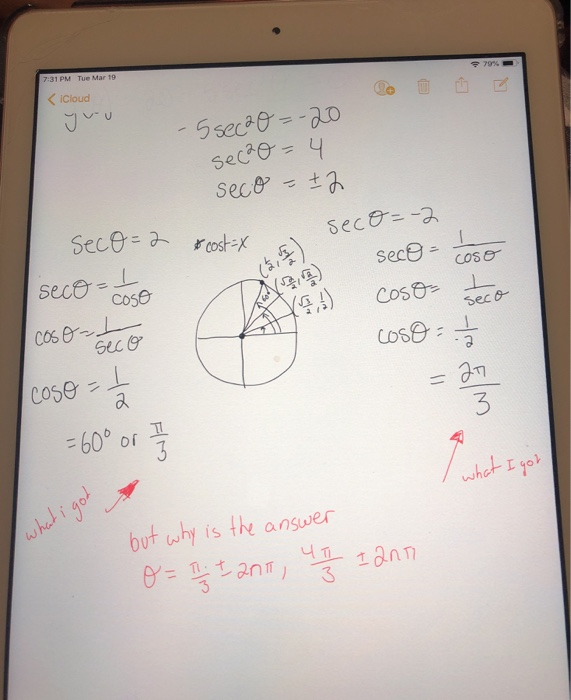 7:31 PM Tue Mar 19
79%
< iCloud
-5sec²θ = -20
sec²θ = 4
secθ = ±2
secθ = 2
secθ = 1/cosθ
cosθ = 1/secθ
cosθ = 1/2
= 60° or π/3
what i got
*cost=x
(1/2, √3/2)
(√2/2, √2/2)
(√3/2, 1/2)
60°
secθ = -2
secθ = 1/cosθ
cosθ = 1/secθ
cosθ = 1/-2
= 2π/3
what I got
but why is the answer
θ = π/3 ± 2nπ, 4π/3 ± 2nπ